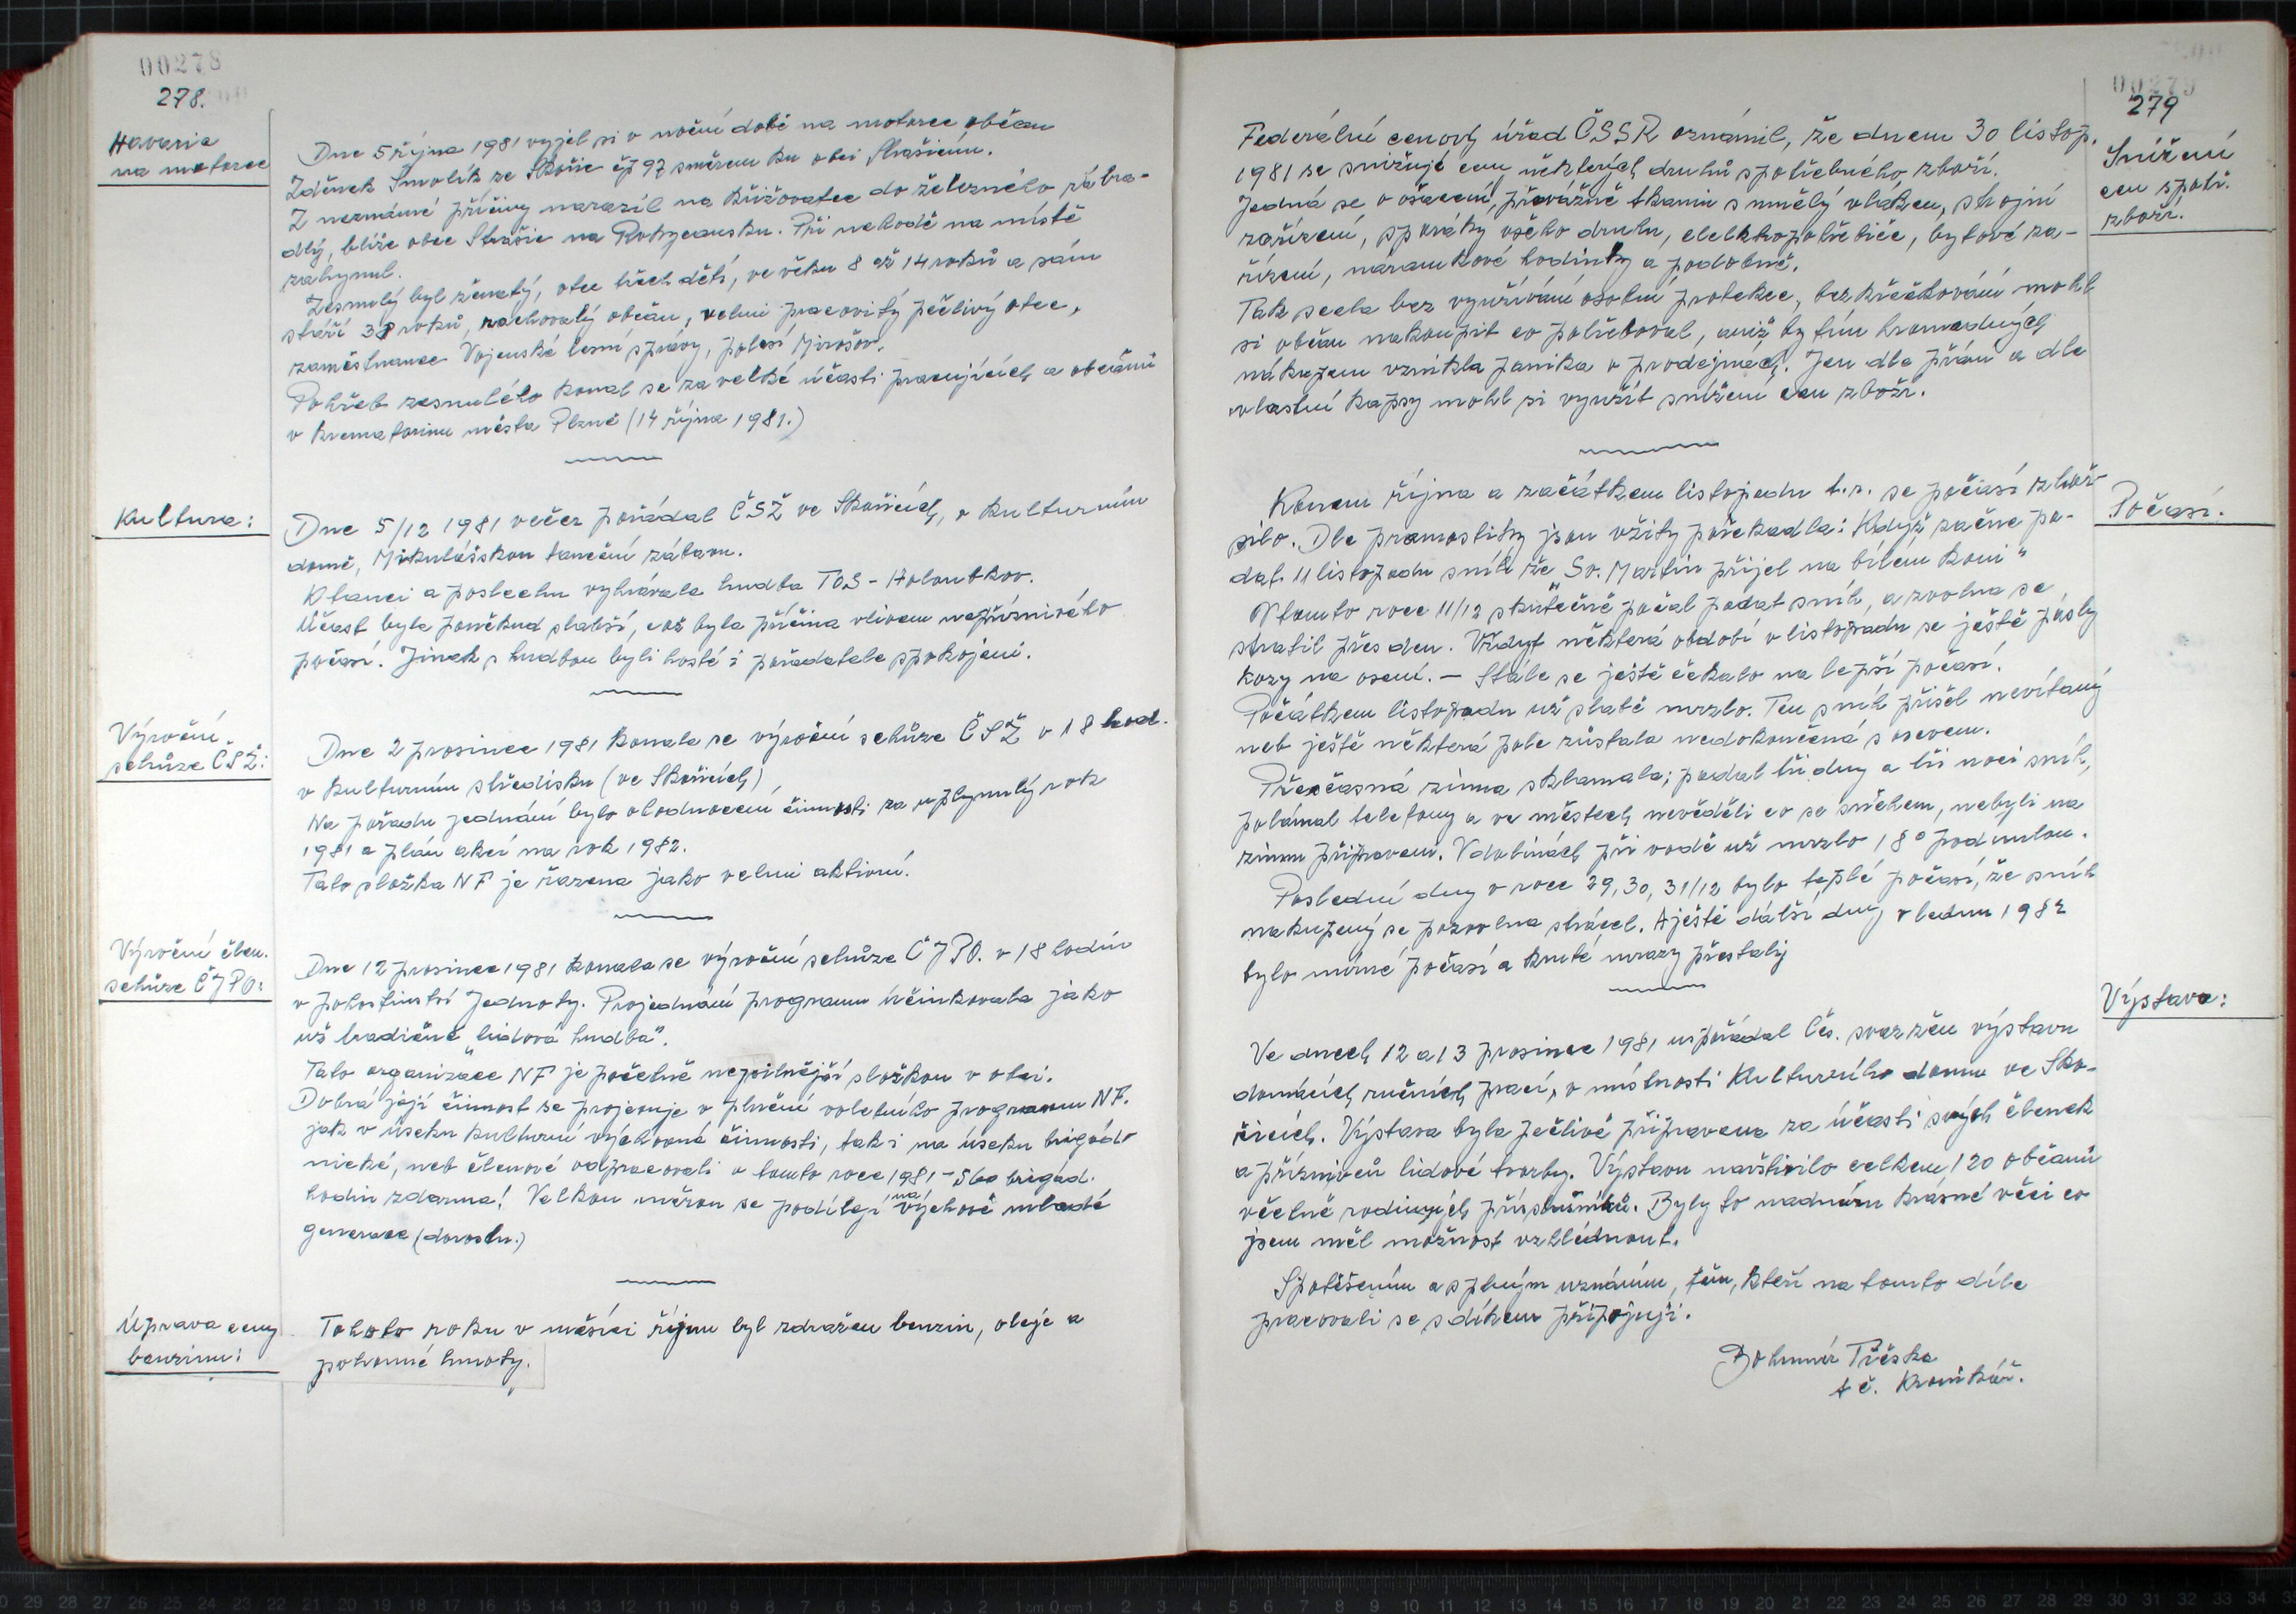 00278
278.
Havarie
na motorce
Dne 5 října 1981 vyjel si v noční době na motorce občan
Zděnek Smolík ze Skořic čp 97 směrem ku obci Strašicím.
Z neznámé příčiny narazil na křižovatce do železného zábra-
dlý, blíže obce Strašic na Rokycansku. Při nehodě na místě
zahynul.
Zesnulý byl ženatý, otec třech dětí, ve věku 8 až 14 roků a sám
stáří 38 roků, zachovalý občan, velmi pracovitý pečlivý otec,
zaměstnanec Vojenské lesní správy, polesí Mirošov.
Pohřeb zesnulého konal se za velké účasti pracujících a občanů
v krematorium města Plzně (14 října 1981.)
Kultura:
Dne 5/12 1981 večer pořádal ČSŽ ve Skořicích, v kulturním
domě, Mikulášskou taneční zábavu.
K tanci a poslechu vyhrávala hudba TOS - Holoubkov.
Účast byla poněkud slabší, což byla příčina vlivem nepříznivého
počasí. Jinak s hudbou byli hosté i pořadatele spokojeni.
Výroční
schůze ČSŽ:
Dne 2 prosince 1981 konala se výroční schůze ČSŽ v 18 hod.
v kulturním středisku (ve Skořicích)
Na pořadu jednání bylo ohodnocení činnosti za uplynulý rok
1981 a plán akcí na rok 1982.
Tato složka NF je řazena jako velmi aktivní.
Výroční člen.
schůze ČJPO:
Dne 12 prosince 1981 konala se výroční schůze ČJPO. v 18 hodin
v pohostinství Jednoty. Projednání programu účinkovala jako
už tradičně „lidová hudba".
Tato organizace NF je početně nejsilnější složkou v obci.
Dobrá její činnost se projevuje v plnění volebního programu NF.
jak v úseku kulturní výchovná činnosti, tak i na úseku brigád-
nické, neb členové odpracovali v tomto roce 1981 - 560 brigád.
hodin zdarma! Velkou měrou se podílejí na výchově mladé
generace (dorostu.)
Úprava ceny
benzinu:
Tohoto roku v měsíci říjnu byl zdražen benzin, oleje a
pohonné hmoty.
00279
279
Snížení
cen spotř.
zboží.
Federální cenový úřad ČSSR oznámil, že dnem 30 listop.
1981 se snižuje ceny některých druhů spotřebného zboží.
Jedná se o ošacení, převážně tkanin s umělý vláken, strojní
zařízení, sporáky všeho druhu, elelktropotřebiče, bytové za-
řízení, náramkové hodinky a podobně.
Tak zcela bez využívání osobní protekce, bez křečkování mohl
si občan nakoupit co potřeboval, aniž by tím hromadných
nákupem vznikla panika v prodejnách. Jen dle přání a dle
vlastní kapsy mohl si využít snížení cen zboží.
Počasí.
Koncem října a začátkem listopadu t.r. se počasí zhor-
šilo. Dle pranostiky jsou vžity pořekadla: Když začne pa-
dat 11 listopadu sníh že „Sv. Martin přijel na bílém koni"
V tomto roce 11/12 skutečně počal padat sníh, a zvolna se
stratil přes den. Vždyť některá období v listopadu se ještě pásly
kozy na osení. - Stále se ještě čekalo na lepší počasí.
Počátkem listopadu už slabě mrzlo. Ten sníh přišel nevítaný
neb ještě některá pole zůstala nedokončená s osevem.
Přesčasná zima sklamala; padal tři dny a tři noci sníh,
polámal telefony a ve městech nevěděli co se sněhem, nebyli na
zimu připraveni. V dolinách při vodě už mrzlo 18° pod nulou.
Poslední dny v roce 29, 30, 31/12 bylo teplé počasí, že sníh
nakupený se pozvolna strácel. A ještě další dny v lednu 1982
bylo mírné počasí a kruté mrazy přestaly
Výstava:
Ve dnech 12 a 13 prosince 1981 uspořádal Čs. svaz žen výstavu
domácích ručních prací, v místnosti Kulturního domu ve Sko-
řicích. Výstava byla pečlivě připravena za účasti svých členek
a příznivců lidové tvorby. Výstavu navštívilo celkem 120 občanů
včetně rodinných příslušníků. Byly to nadmíru krásné věci co
jsem měl možnost vzhlédnout.
S potěšením a s plným uznáním, těm, kteří na tomto díle
pracovali se s díkem připojuji.
Bohumír Třeska
t č. Kronikář.